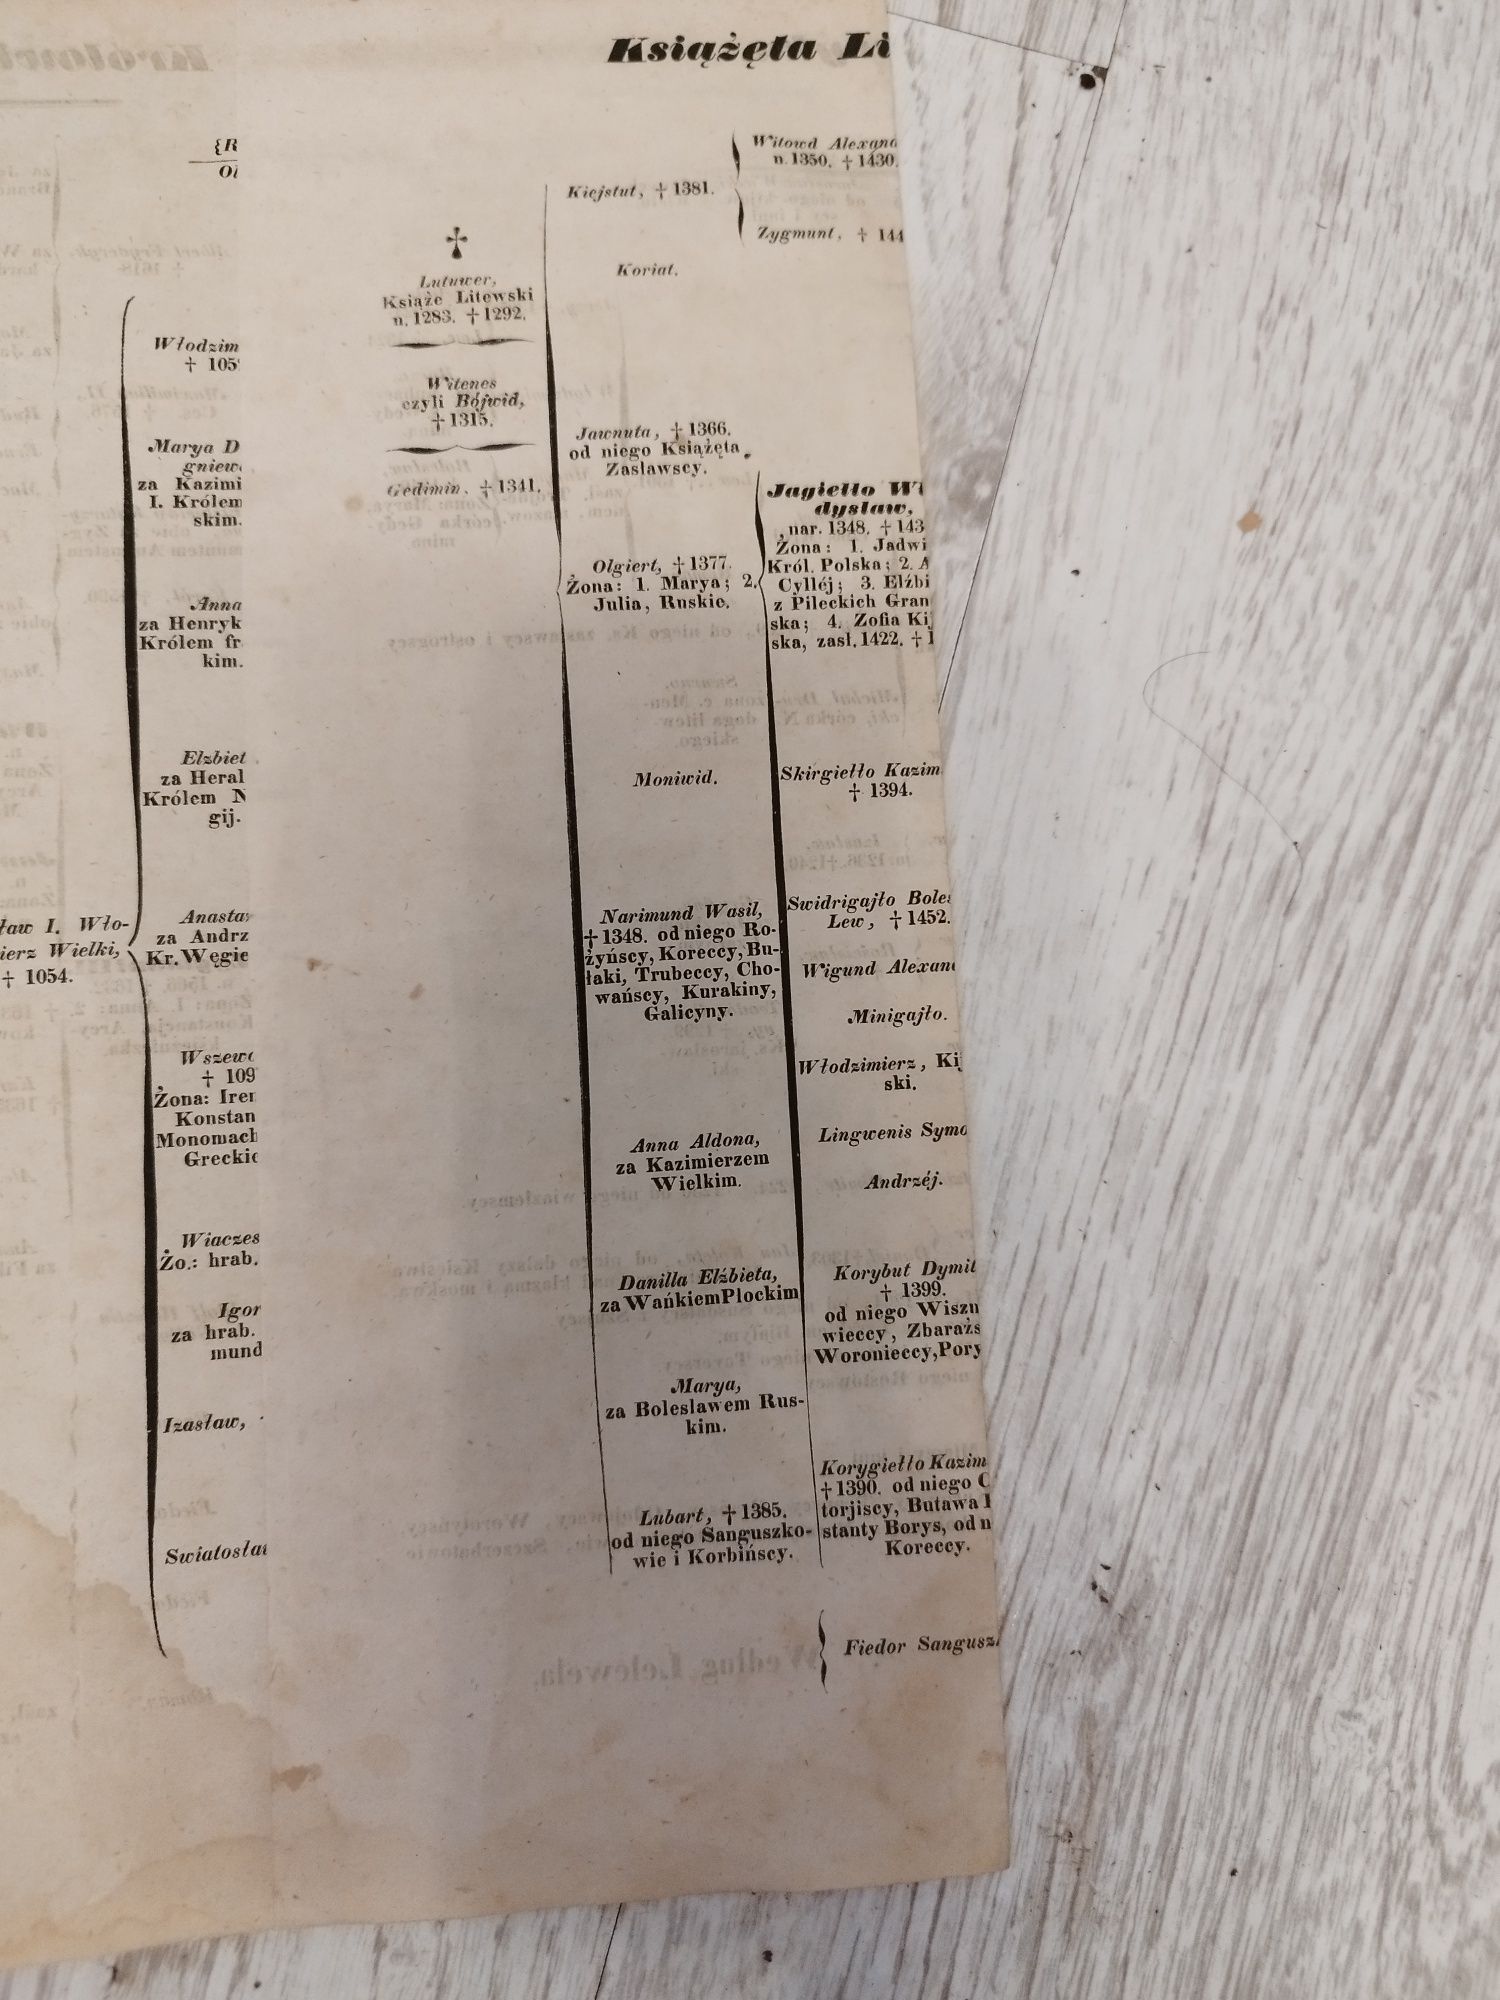 Książęta Li
{R
Witowd Alexand
n. 1350. † 1430.
Kiejstut, † 1381.
Zygmunt, † 144
Koriat.
Lutuwer,
Książe Litewski
n. 1283. † 1292.
Witenes
czyli Bójwid,
† 1315.
Gedimin. † 1341.
Jawnuta, † 1366.
od niego Książęta
Zasławscy.
Olgiert, † 1377.
Żona: 1. Marya; 2.
Julia, Ruskie.
Moniwid.
Narimund Wasil,
† 1348. od niego Ro-
żyńscy, Koreccy, Bu-
łaki, Trubeccy, Cho-
wańscy, Kurakiny,
Galicyny.
Anna Aldona,
za Kazimierzem
Wielkim.
Danilla Elźbieta,
za Wańkiem Płockim
Marya,
za Bolesławem Rus-
kim.
Lubart, † 1385.
od niego Sanguszko-
wie i Korbińscy.
Jagiełło Wł
dysław,
nar. 1348. † 143
Żona: 1. Jadwi
Król. Polska; 2. A
Cylléj; 3. Elźbi
z Pileckich Gran
ska; 4. Zofia Kij
ska, zasł. 1422. † 1
Skirgiełło Kazim
† 1394.
Swidrigajło Boles
Lew, † 1452.
Wigund Alexand
Minigajło.
Włodzimierz, Kij
ski.
Lingwenis Symo
Andrzéj.
Korybut Dymit
† 1399.
od niego Wiszn
wieccy, Zbarażs
Woronieccy, Pory
Korygiełło Kazim
† 1390. od niego C
torjiscy, Butawa K
stanty Borys, od n
Koreccy.
Fiedor Sangusz
ław I. Wło-
ierz Wielki,
† 1054.
Włodzim
† 105
Marya D
gniew
za Kazimi
I. Królem
skim.
Anna
za Henryk
Królem fr
kim.
Elzbiet
za Heral
Królem N
gij.
Anastaz
za Andrz
Kr. Węgie
Wszewo
† 109
Żona: Iren
Konstan
Monomach
Greckie
Wiaczes
Żo.: hrab.
Igor
za hrab.
mund
Izasław,
Swiatosław